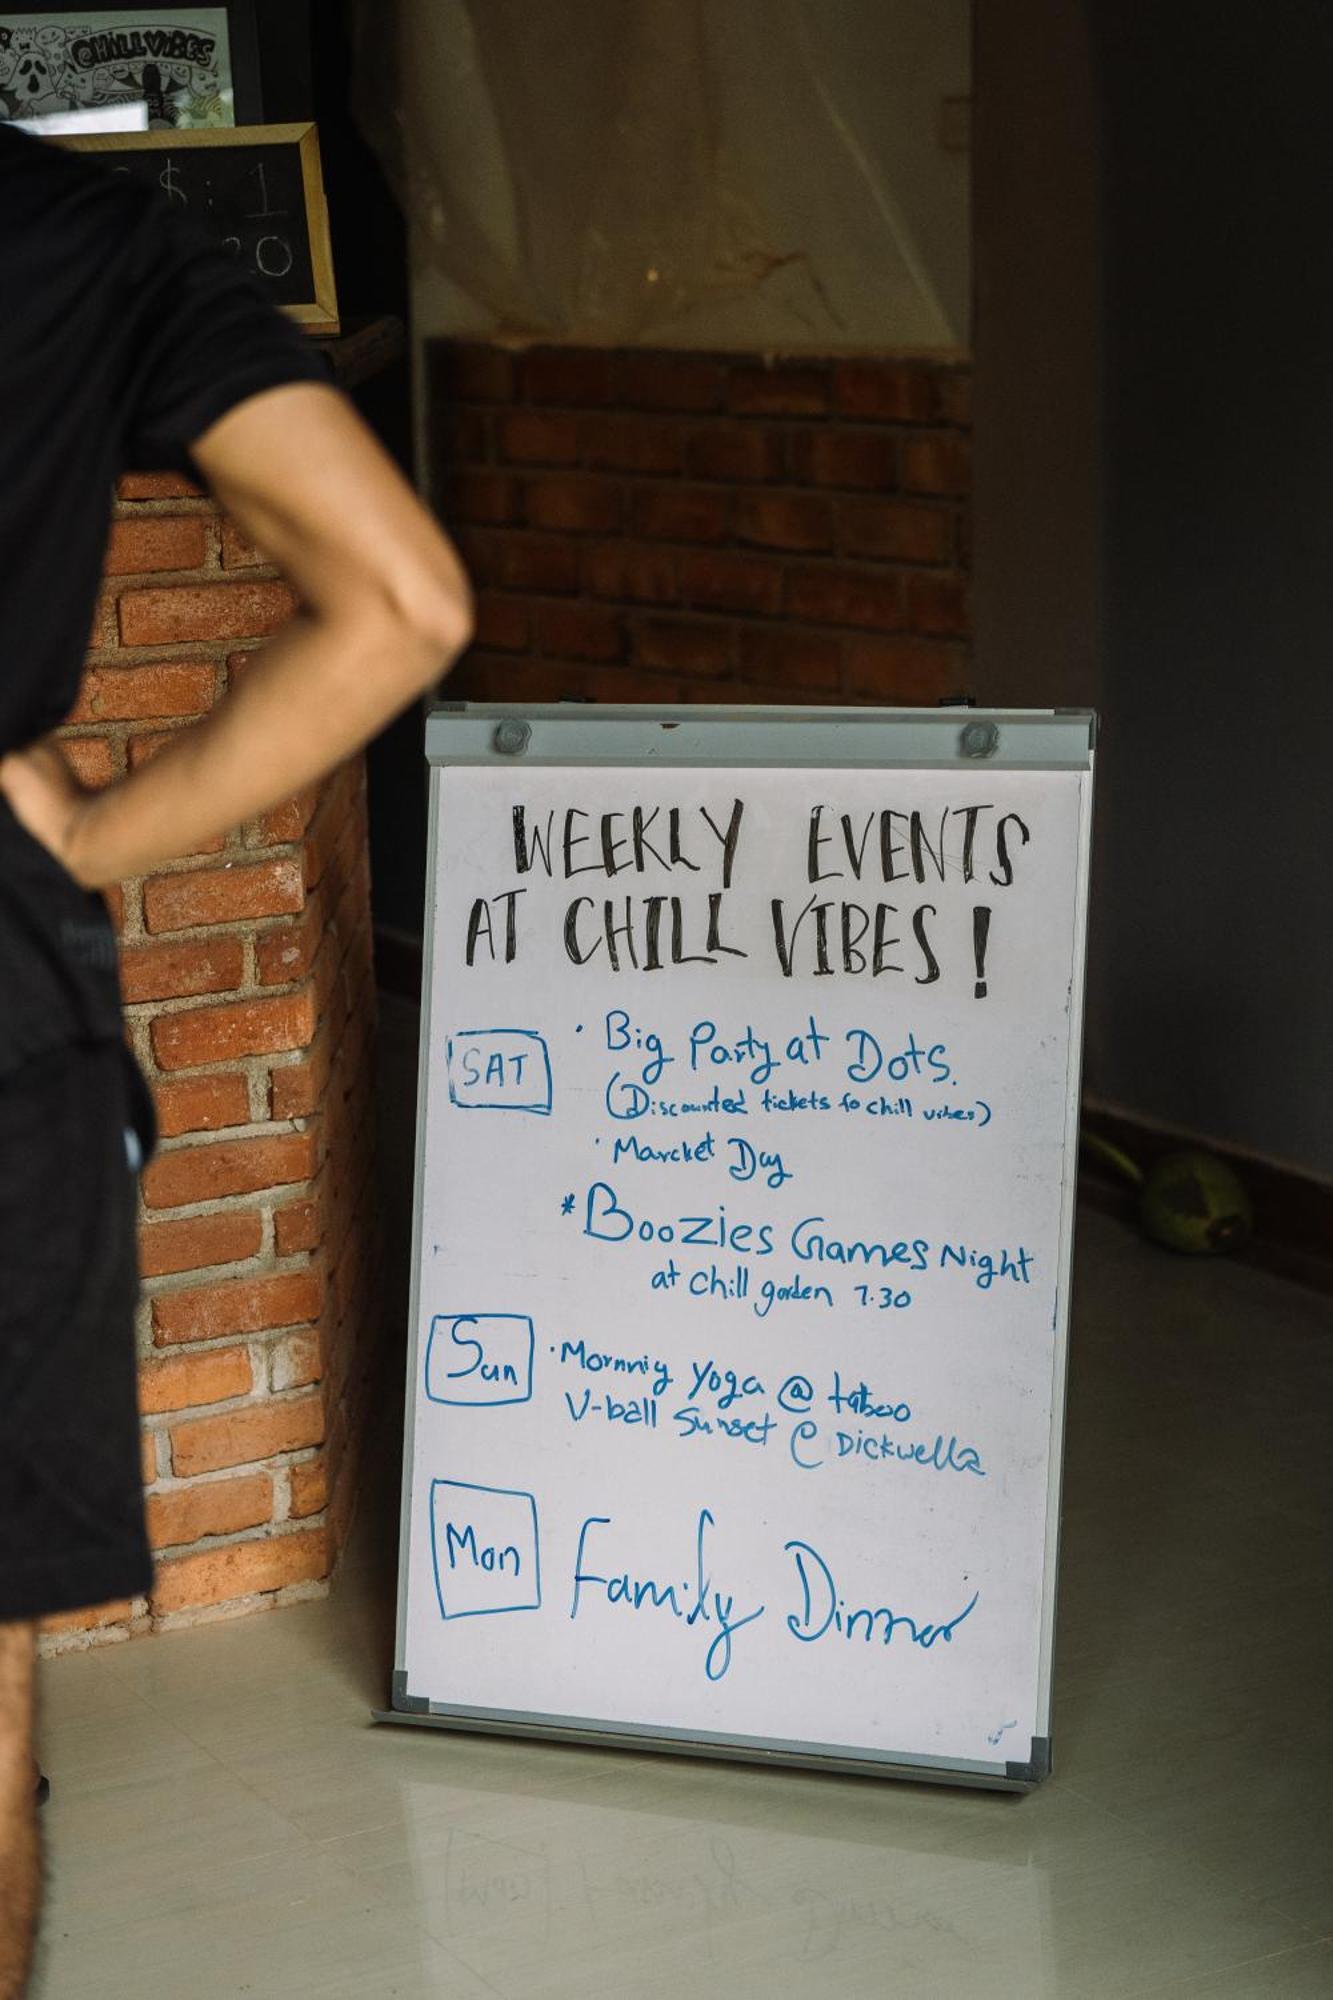 CHILL VIBES
$ : 1
20
WEEKLY EVENTS
AT CHILL VIBES!
SAT
· Big Party at Dots.
(Discounted tickets fo chill vibes)
· Marcket Day
*Boozies Games Night
at chill garden 7.30
Sun
· Mornnig Yoga @ taboo
V-ball Sunset @ Dickwella
Mon
Family Dinner